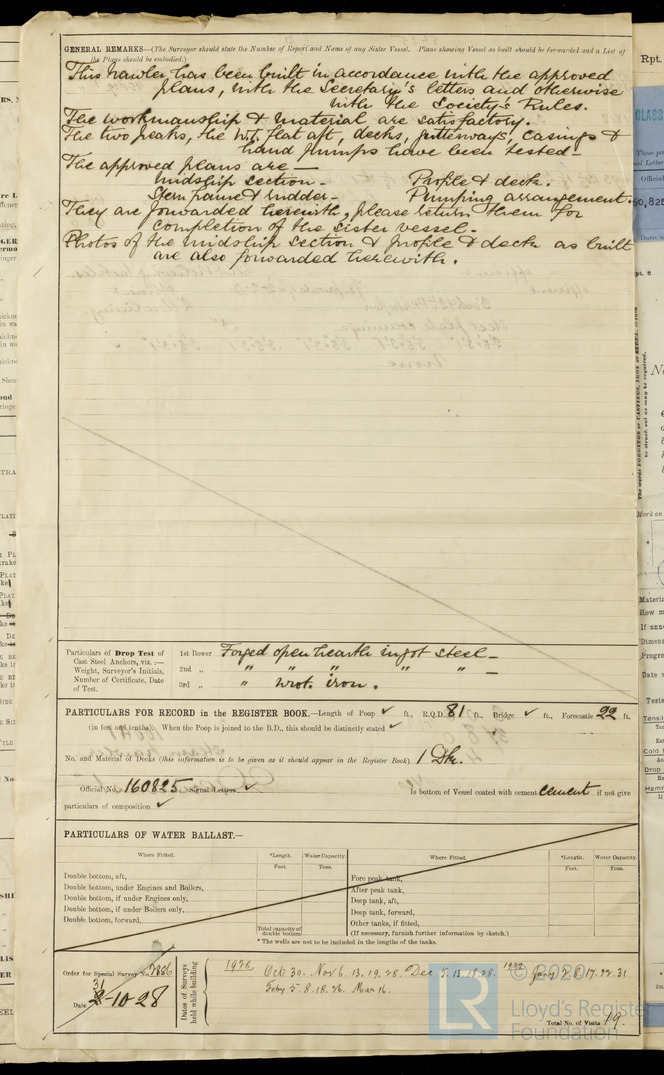 GENERAL REMARKS—(The Surveyor should state the Number of Report and Name of any Sister Vessel. Plans showing Vessel as built should be forwarded and a List of
the Plans should be embodied.)
This trawler has been built in accordance with the approved
plans, with the Secretary's letters and otherwise
with the Society's Rules.
The workmanship & material are satisfactory.
The two peaks, the W.T. flat aft, decks, gutterways, casings &
hand pumps have been tested—
The approved plans are—
Midship section - Profile & deck.
Stern frame & rudder - Pumping arrangement.
They are forwarded herewith, please return them for
completion of the sister vessel-
Photos of the midship section & profile & deck as built
are also forwarded herewith.
Particulars of Drop Test of
Cast Steel Anchors, viz.:—
Weight, Surveyor's Initials,
Number of Certificate, Date
of Test.
1st Bower Forged open hearth ingot steel -
2nd „ " " " " " -
3rd „ " wrot. iron.
PARTICULARS FOR RECORD in the REGISTER BOOK.—Length of Poop ✓ ft., R.Q.D. 81 ft., Bridge ✓ ft., Forecastle 22 ft.
(in feet and tenths). When the Poop is joined to the B.D., this should be distinctly stated ✓
No. and Material of Decks (this information is to be given as it should appear in the Register Book) 1 Dk.
Official No. 160825 Signal Letters ✓ Is bottom of Vessel coated with cement cement if not give
particulars of composition ✓
PARTICULARS OF WATER BALLAST.—
Where Fitted. *Length. Water Capacity. Where Fitted. *Length. Water Capacity.
Feet. Tons. Feet. Tons.
Double bottom, aft, Fore peak tank,
Double bottom, under Engines and Boilers, After peak tank,
Double bottom, if under Engines only, Deep tank, aft,
Double bottom, if under Boilers only, Deep tank, forward,
Double bottom, forward, Other tanks, if fitted,
Total capacity of double bottom (If necessary, furnish further information by sketch.)
* The wells are not to be included in the lengths of the tanks.
Order for Special Survey
Date 31-10-28
Dates of Surveys
held while building
1928 Oct 30. Nov 6. 13. 19. 28. Dec 5. 13. 18. 28. 1929 Jany 17. 22. 31
Feby 5. 8. 18. 26. Mar 16.
Total No. of Visits 19.
© 2020
LR
Lloyd's Register
Foundation
Rpt.
CLASS
Official
60,825